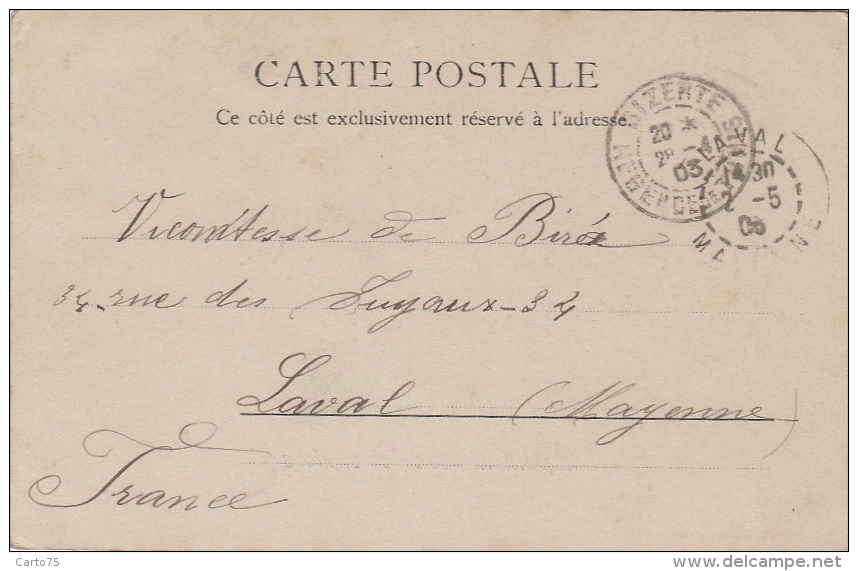 CARTE POSTALE
Ce côté est exclusivement réservé à l'adresse.
BIZERTE
20 *
28 -4
03
LAVAL
14 30
2 -5
03
MAYENNE
Vicomtesse de Biré
34 rue des Tuyaux - 34
Laval (Mayenne)
France
Carto75
www.delcampe.net